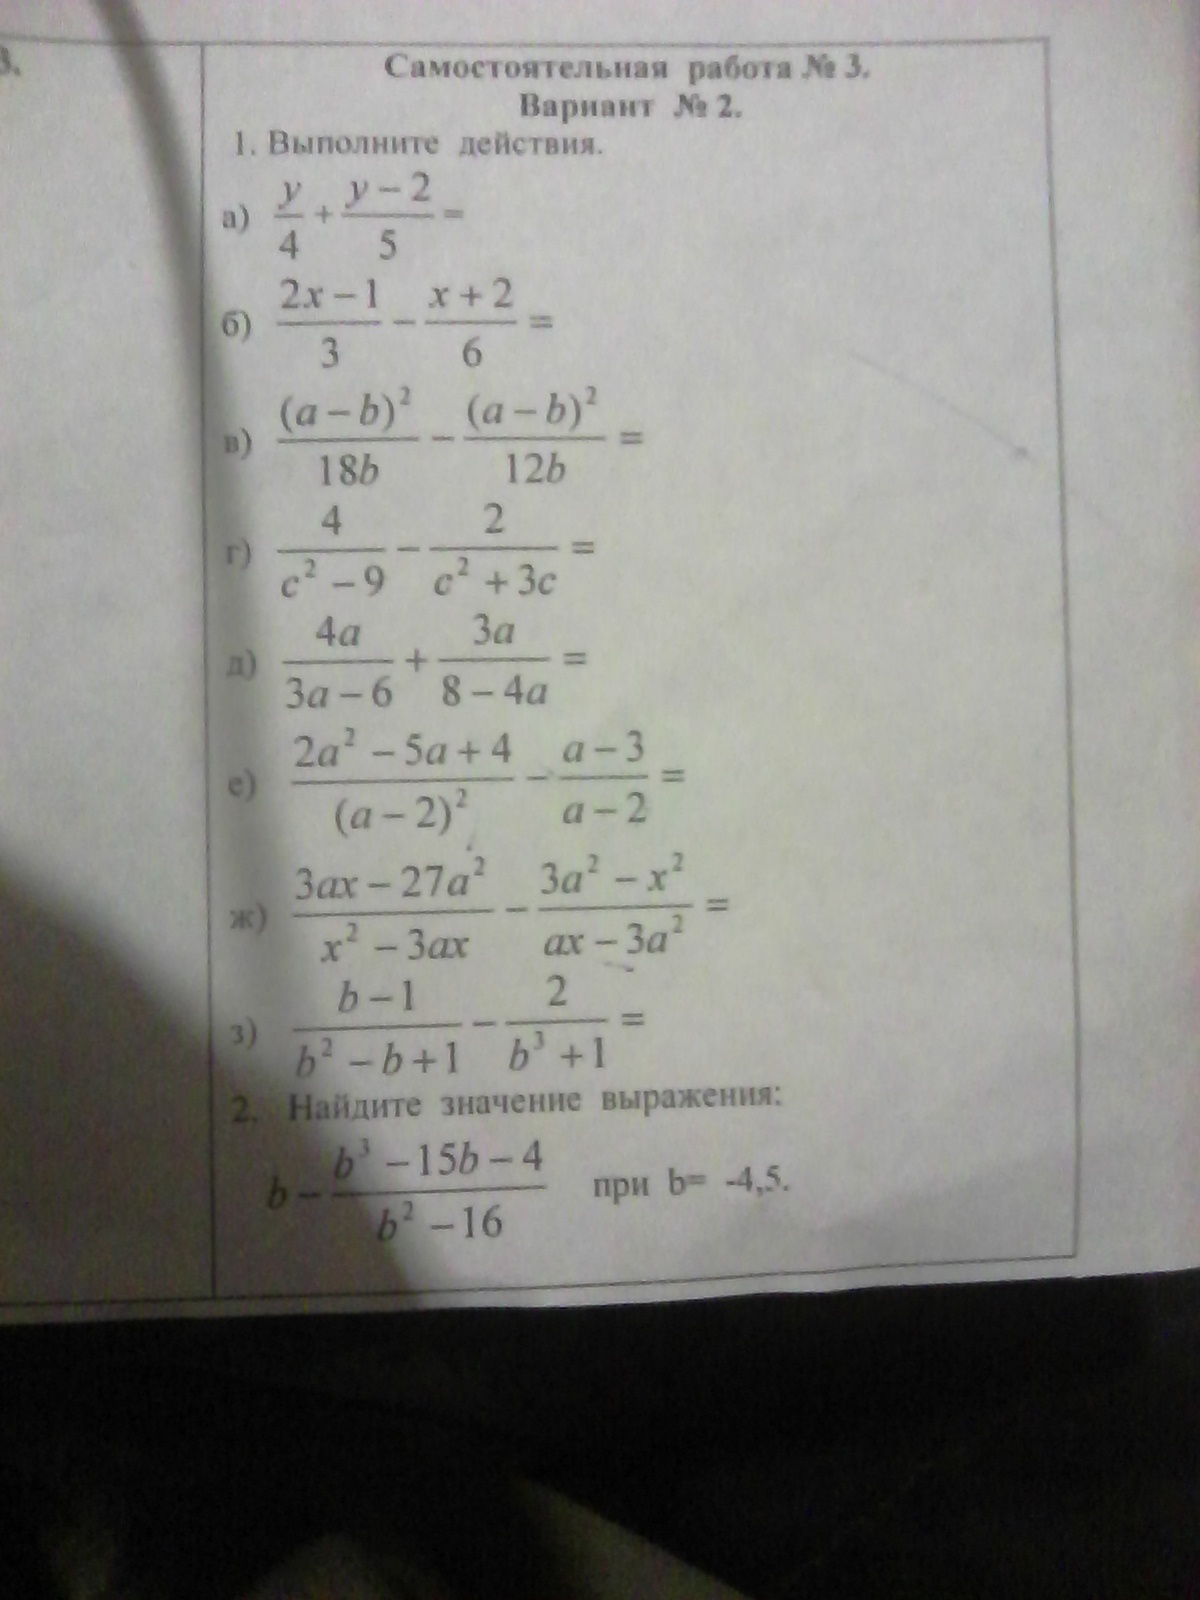 3.
Самостоятельная работа № 3.
Вариант № 2.
1. Выполните действия.
а) y/4 + (y − 2)/5 =
б) (2x − 1)/3 − (x + 2)/6 =
в) (a − b)²/18b − (a − b)²/12b =
г) 4/(c² − 9) − 2/(c² + 3c) =
д) 4a/(3a − 6) + 3a/(8 − 4a) =
е) (2a² − 5a + 4)/(a − 2)² − (a − 3)/(a − 2) =
ж) (3ax − 27a²)/(x² − 3ax) − (3a² − x²)/(ax − 3a²) =
з) (b − 1)/(b² − b + 1) − 2/(b³ + 1) =
2. Найдите значение выражения:
b − (b³ − 15b − 4)/(b² − 16) при b= -4,5.